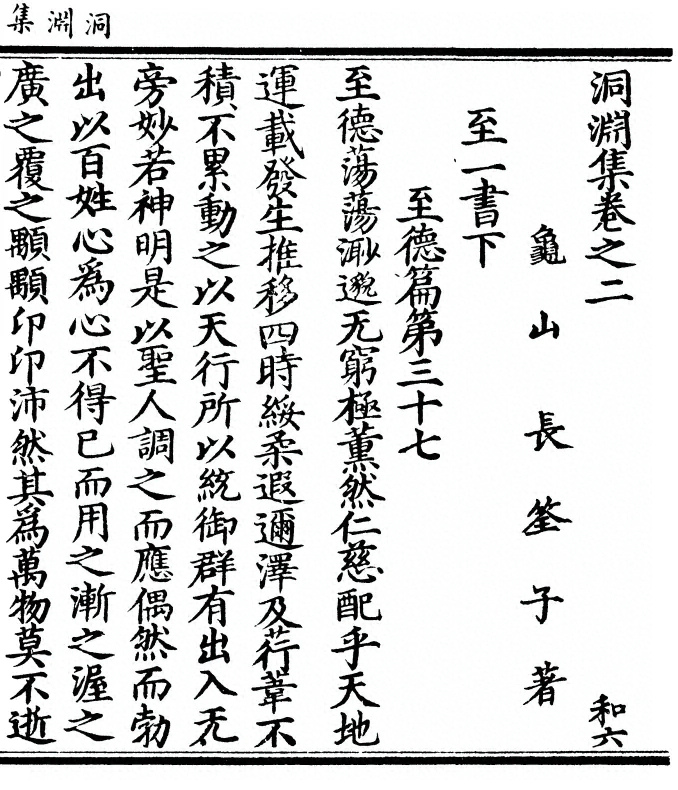 洞淵集
洞淵集卷之二
和六
龜山長筌子著
至一書下
至德篇第三十七
至德蕩蕩渺邈无窮極薰然仁慈配乎天地
運載發生推移四時綏柔遐邇澤及荇葦不
積不累動之以天行所以統御群有出入无
旁妙若神明是以聖人調之而應偶然而勃
出以百姓心為心不得已而用之漸之渥之
廣之覆之顒顒卬卬沛然其為萬物莫不逝